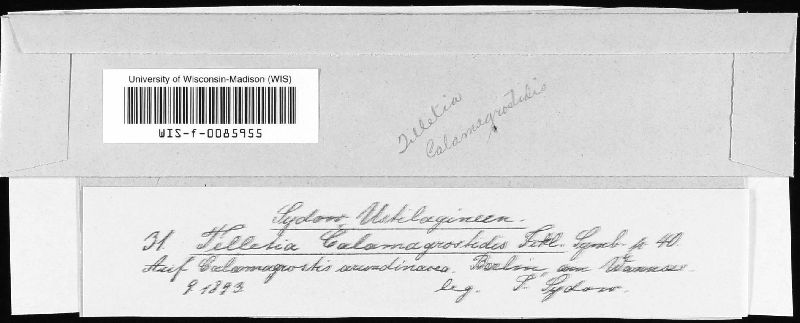 University of Wisconsin-Madison (WIS)
WIS-f-0085955
Tilletia
Calamagrostidis
Sydow, Ustilagineen.
31. Tilletia Calamagrostidis Fckl. Symb. p. 40.
Auf Calamagrostis arundinacea. Berlin, am Wannsee.
9 1893 leg. P. Sydow.